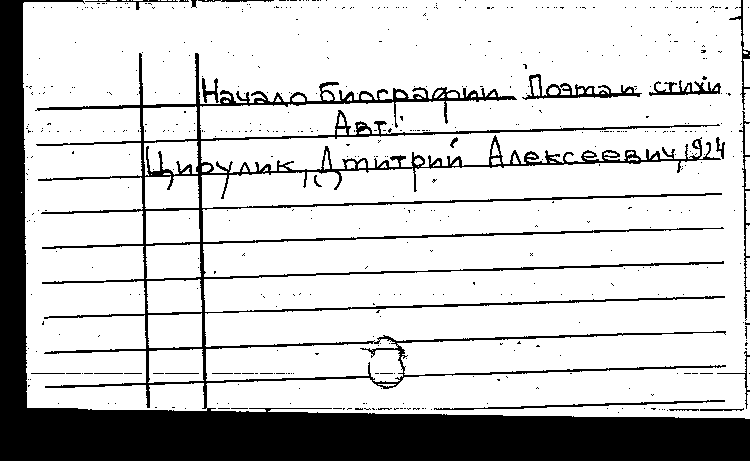 Начало биографии Поэта и стихи
Авт.:
Цирулик, Дмитрий Алексеевич, 1924